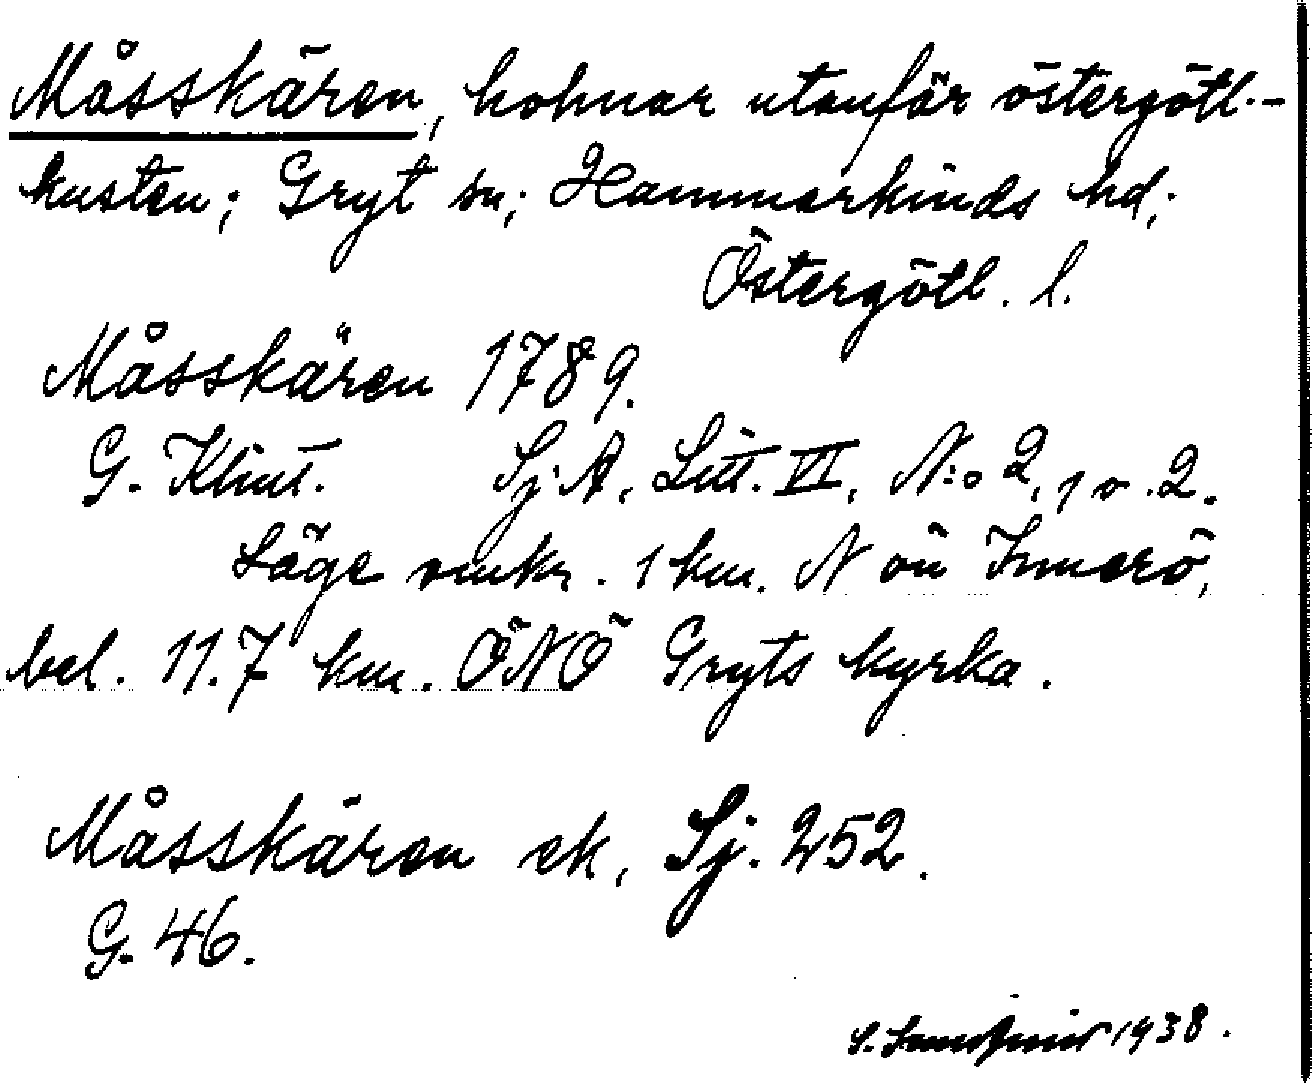 Måsskären, holmar utanför östergötl.-
kusten; Gryt sn; Hammarkinds hd;
Östergötl. l.
Måsskären 1789.
G. Klint. Sj. A, Litt. VI, N:o 2, 1 o. 2.
Läge omkr. 1 km. N ön Innerö,
bel. 11.7 km. ÖNÖ Gryts kyrka.
Måsskären ek, Sj. 252.
G. 46.
S. 1938.